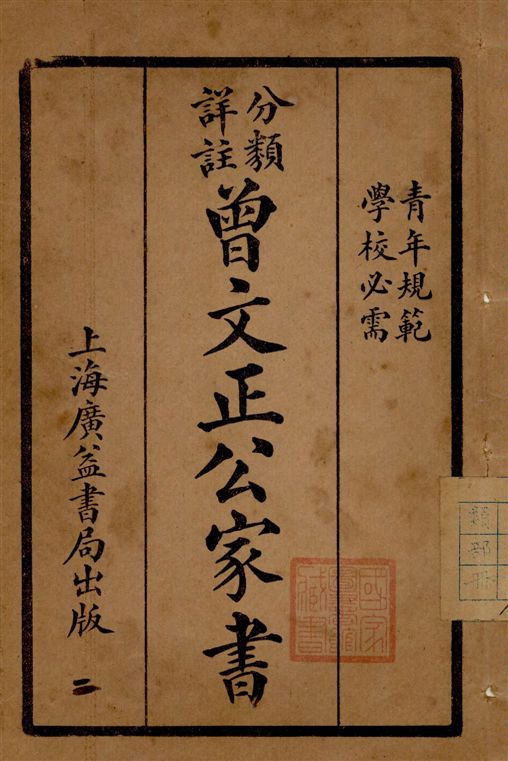 青年規範
學校必需
分類
詳註
曾文正公家書
上海廣益書局出版
二
國家
圖書館
藏書
類
部
冊